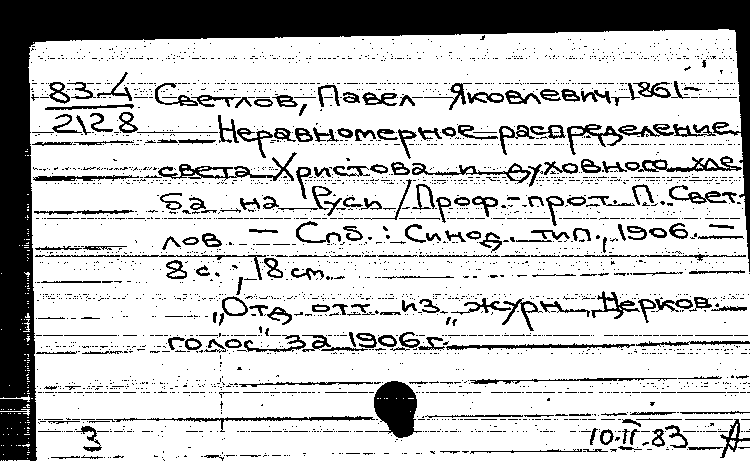 83-4
2128
Светлов, Павел Яковлевич, 1861-
Неравномерное распределение
света Христова и духовного хле-
ба на Руси / Проф.-прот. П. Свет-
лов. — Спб.: Синод. тип., 1906. —
8 с.; 18 см.
„Отд. отт. из „журн „Церков.
голос" за 1906 г.
10.II.83